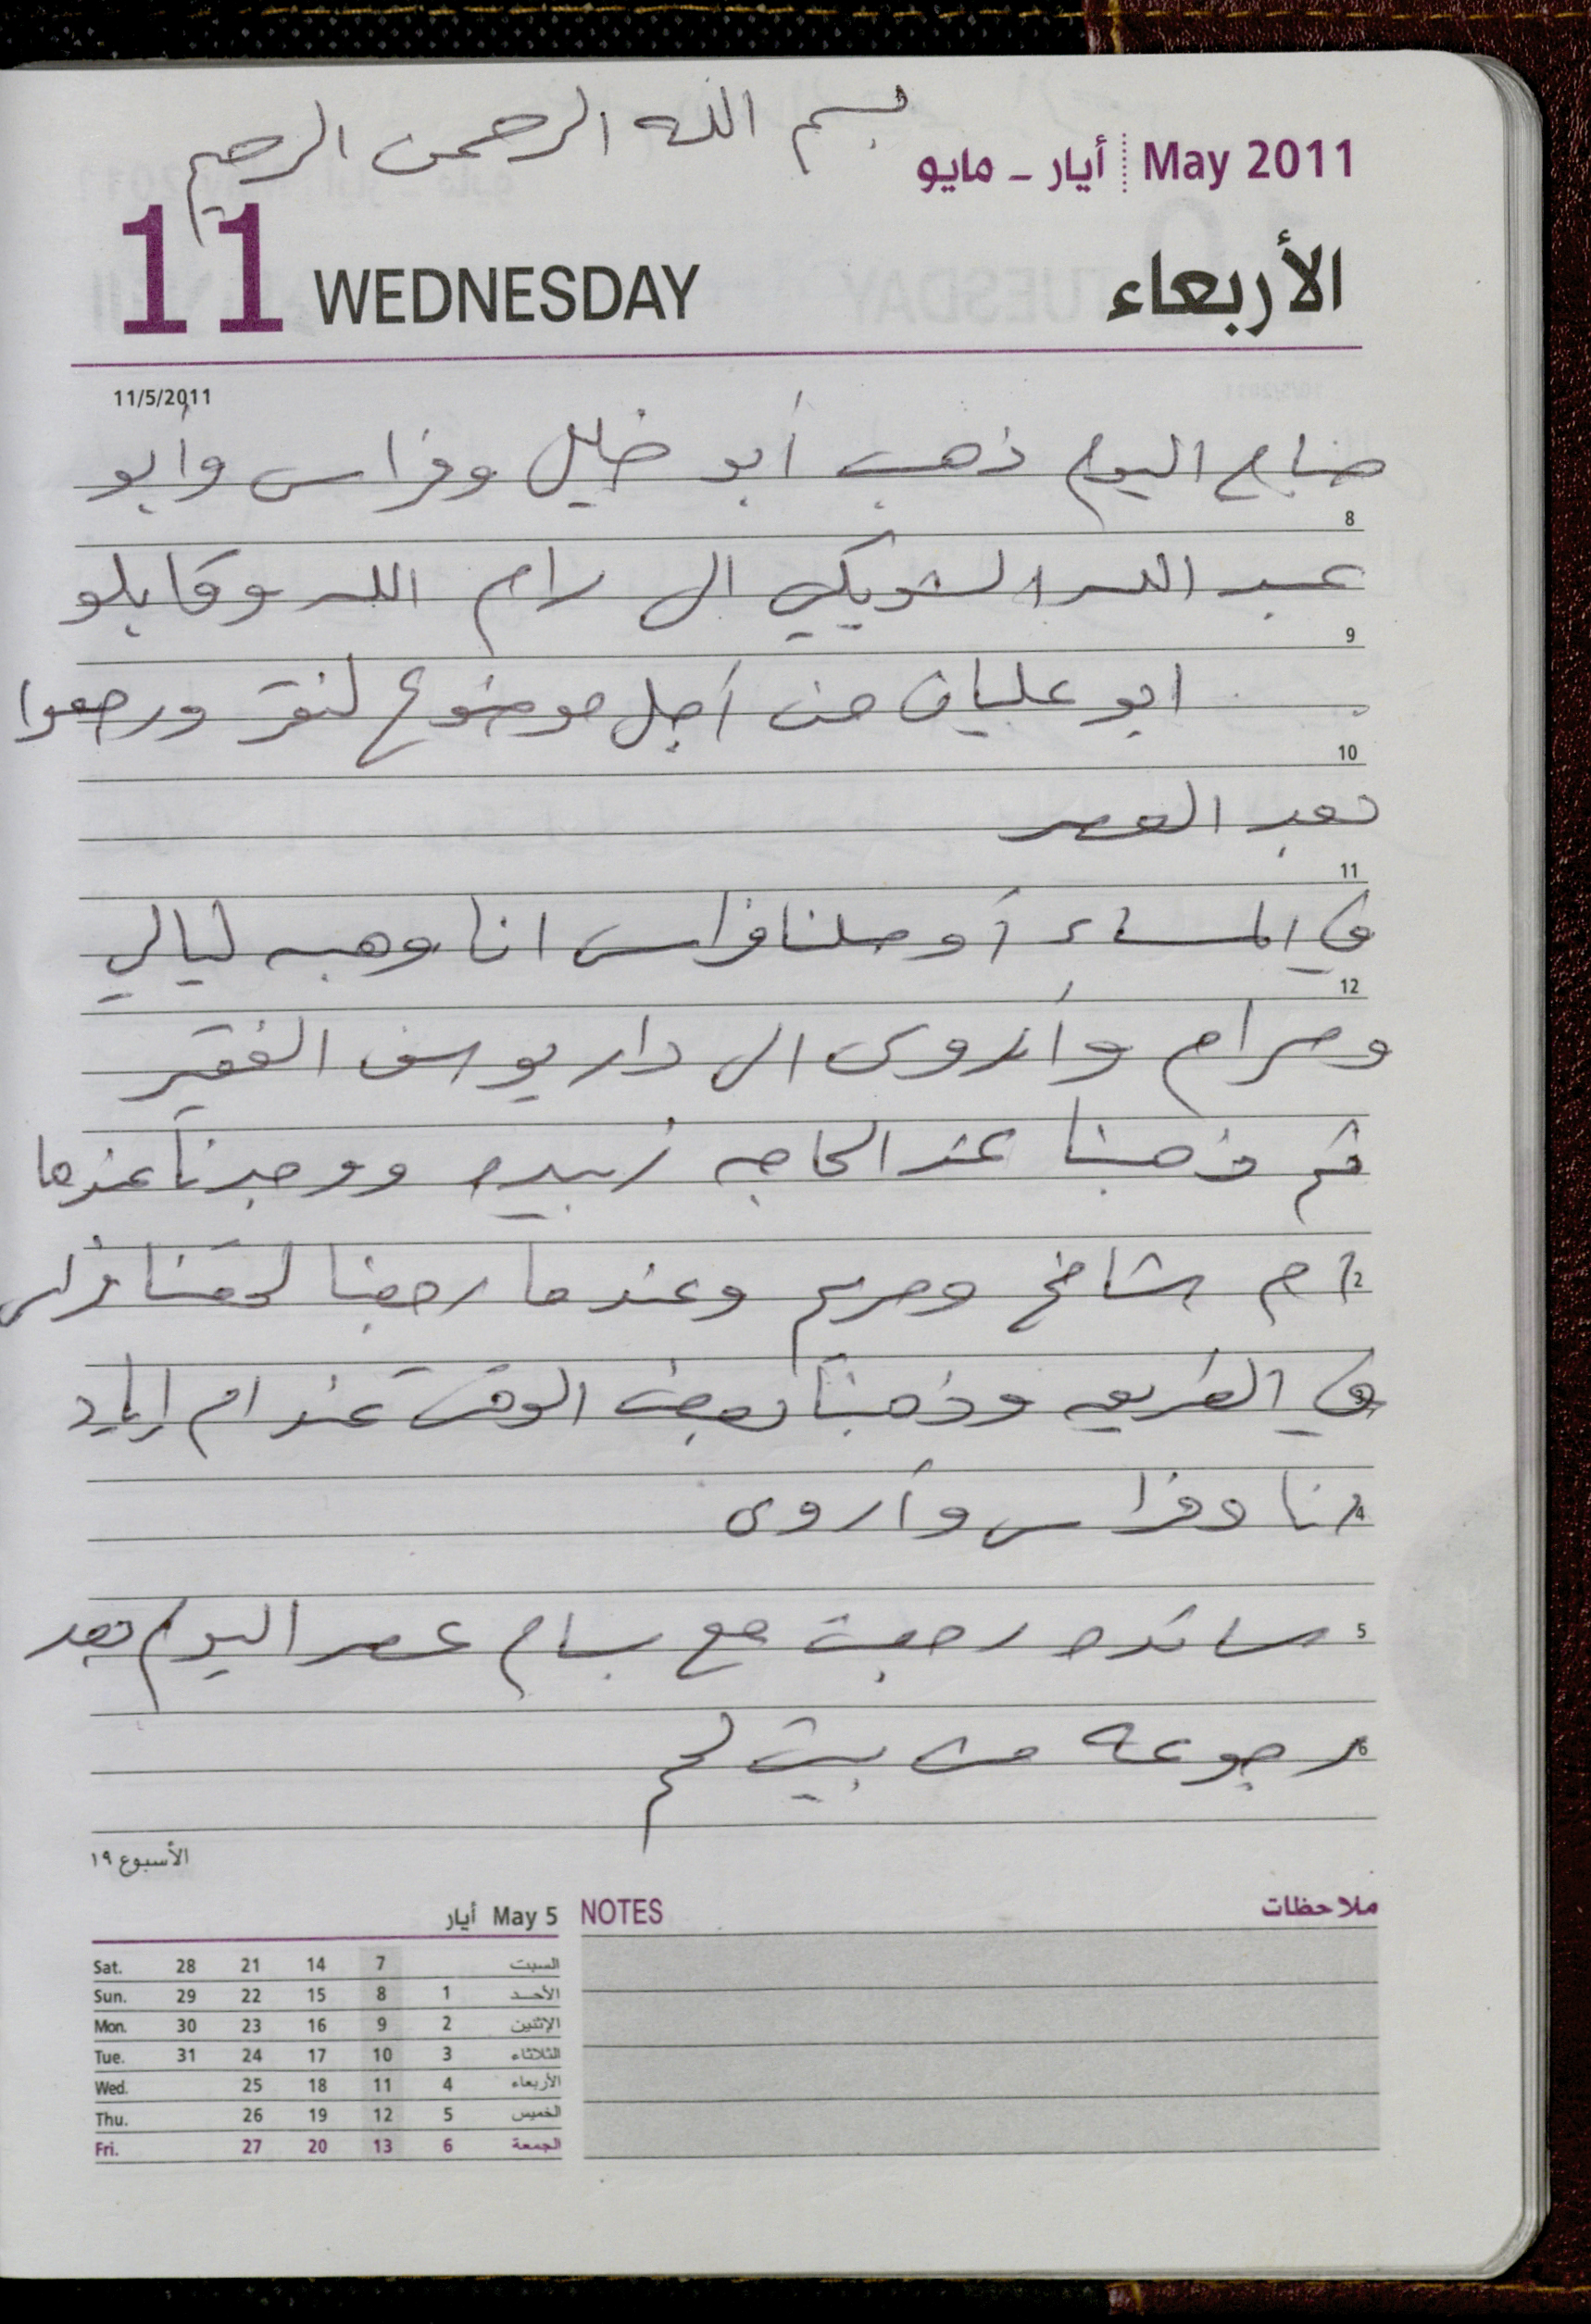 بسم الله الرحمن الرحيم
May 2011 أيار - مايو
11 WEDNESDAY الأربعاء
11/5/2011
صباح اليوم ذهب أبو خليل وفراس وأبو
8
عبد الله الشويكي الى رام الله وقابلو
9
ابو عليان من أجل موضوع لنقر ورجعوا
10
بعد العصر
11
في المساء أوصلنا فراس انا وهبه ليالي
12
ومرام وأروى الى دار يوسف الفقير
ثم ذهبنا عند الحاجه زبيده ووجدنا عندها
2 ام شامخ ومريم وعندما رجعنا لحقنا فراس
في الطريق وذهبنا بعض الوقت عند ام إياد
4 انا وفراس وأروى
5 سائده رجعت مع بسام عصر اليوم بعد
6 رجوعه من بيت لحم
الأسبوع ١٩
أيار May 5 NOTES ملاحظات
Sat. 28 21 14 7 السبت
Sun. 29 22 15 8 1 الأحد
Mon. 30 23 16 9 2 الإثنين
Tue. 31 24 17 10 3 الثلاثاء
Wed. 25 18 11 4 الأربعاء
Thu. 26 19 12 5 الخميس
Fri. 27 20 13 6 الجمعة